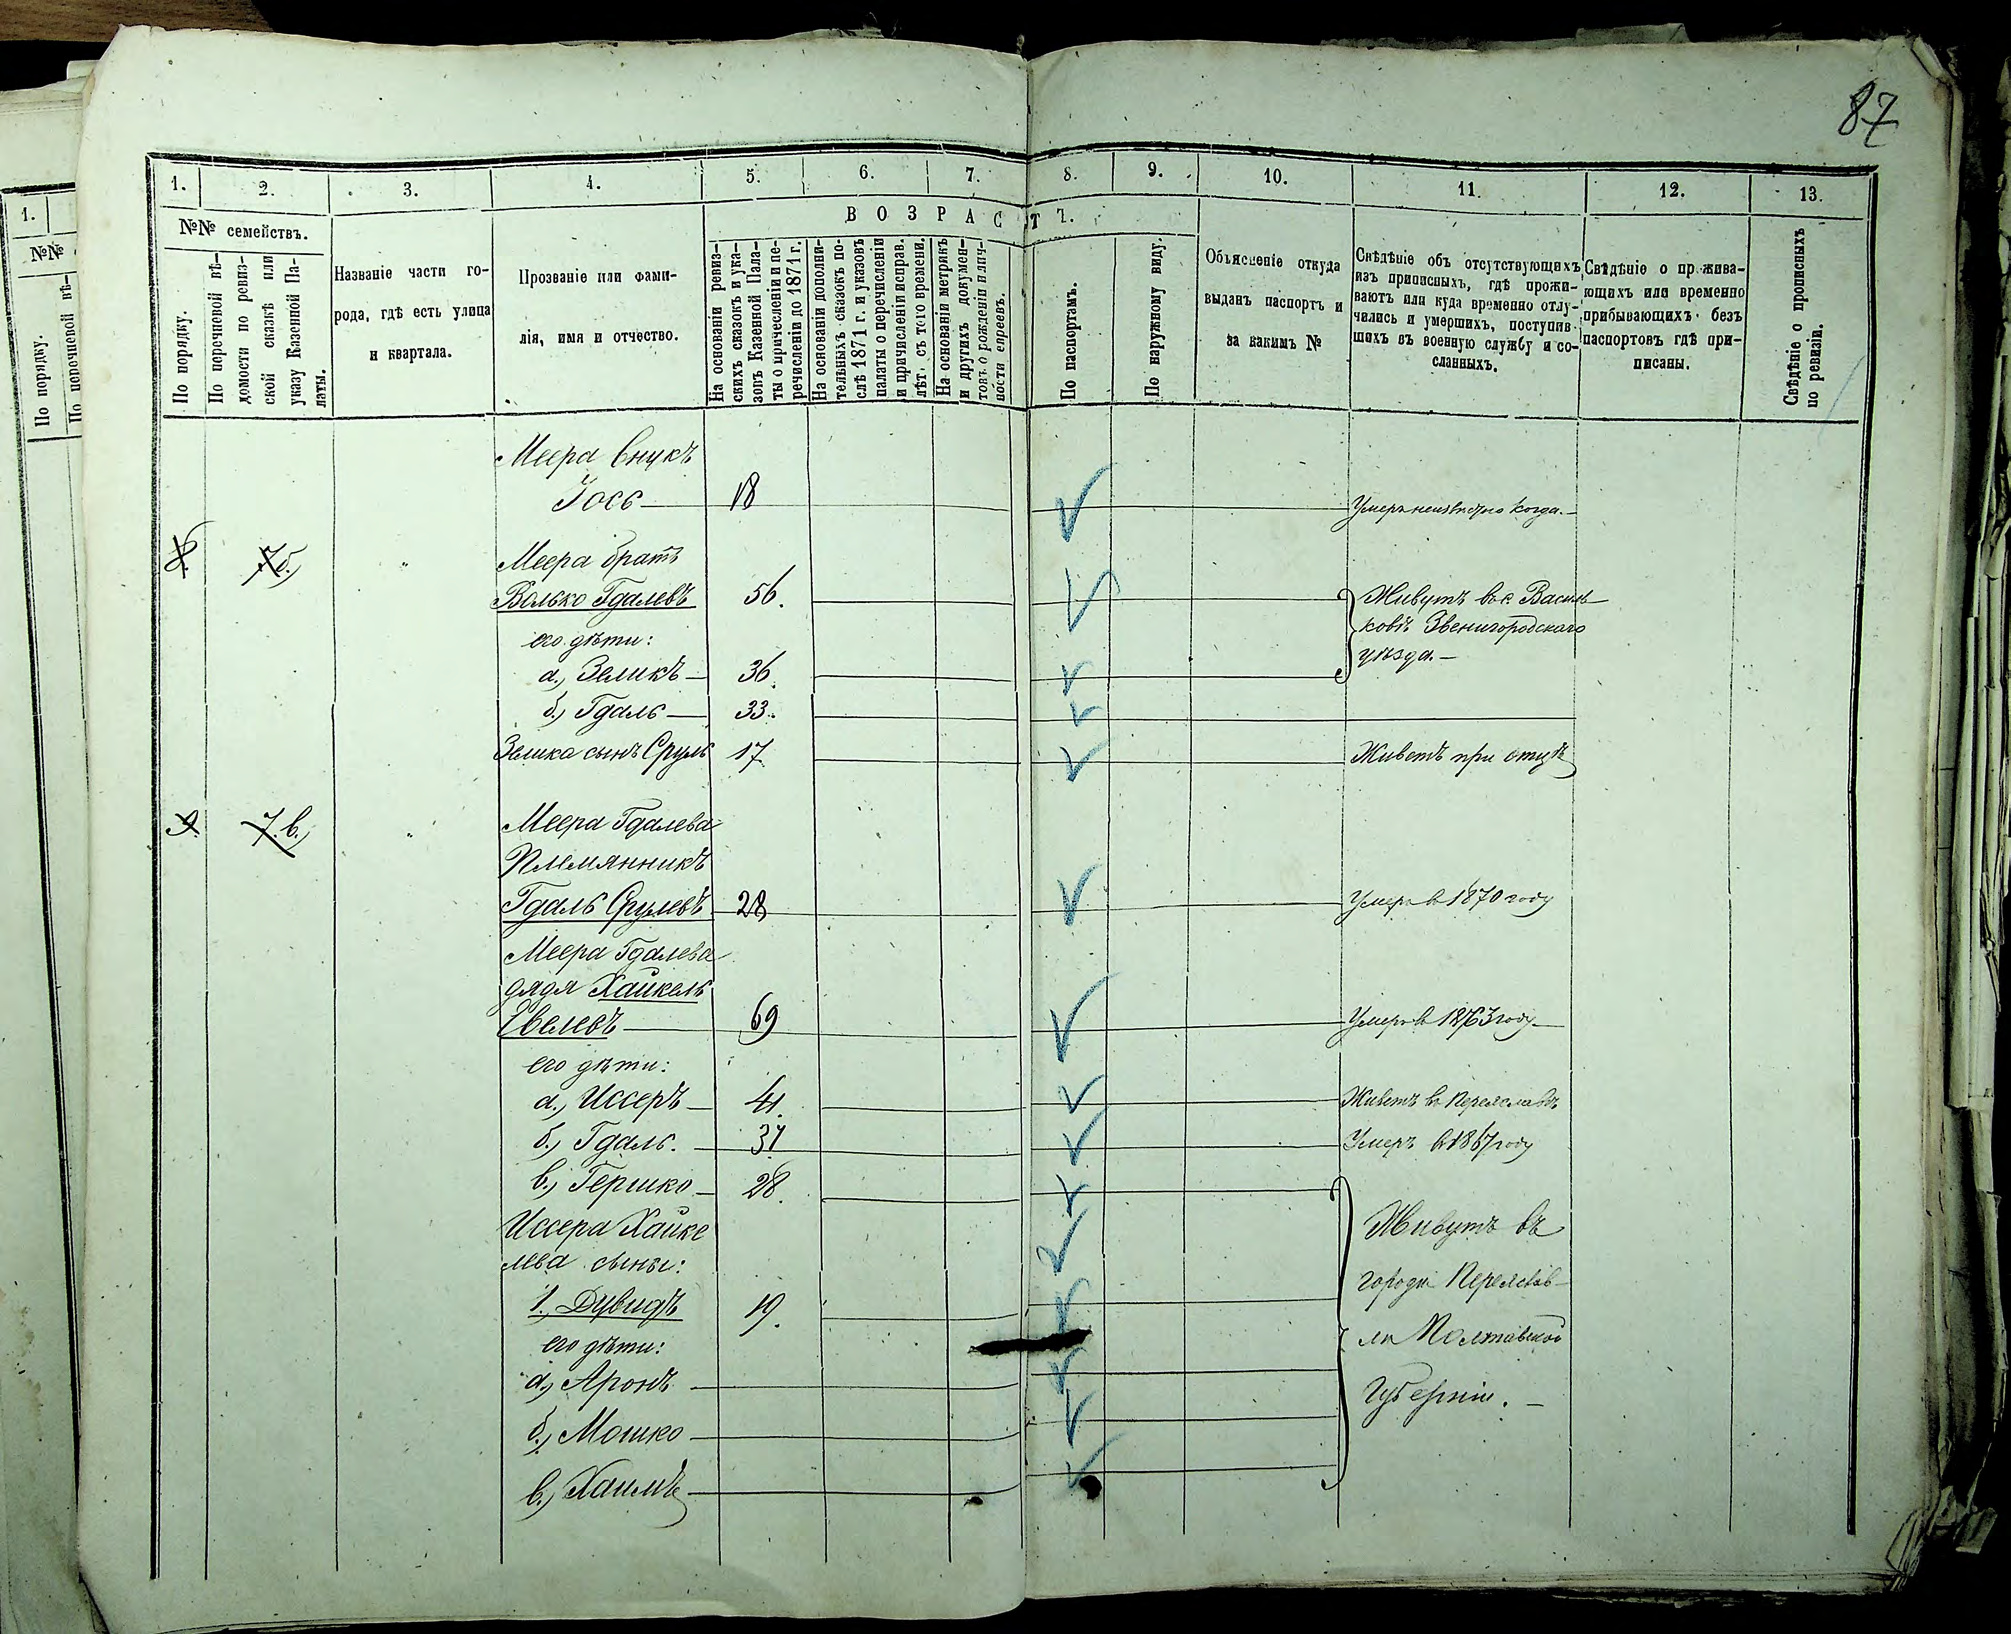 87
1. 2. 3. 4. 5. 6. 7. 8. 9. 10. 11. 12. 13.
№№ семействъ.
По порядку.
По перечневой вѣ-
домости по ревиз-
ской сказкѣ или
указу Казенной Па-
латы.
Названіе части го-
рода, гдѣ есть улица
и квартала.
Прозваніе или фами-
лія, имя и отчество.
ВОЗРАСТЪ.
На основаніи ревиз-
скихъ сказокъ и ука-
зовъ Казенной Пала-
ты о причисленіи и пе-
речисленіи до 1871 г.
На основаніи дополни-
тельныхъ сказокъ по-
слѣ 1871 г. и указовъ
палаты о перечисленіи
и причисленіи исправ.
лѣт. съ того времени.
На основаніи метрикъ
и другихъ докумен-
товъ о рожденіи и лич-
ности евреевъ.
По паспортамъ.
По наружному виду.
Объясненіе откуда
выданъ паспортъ и
за какимъ №
Свѣдѣніе объ отсутствующихъ
изъ приписныхъ, гдѣ прожи-
ваютъ или куда временно отлу-
чились и умершихъ, поступив-
шихъ въ военную службу и со-
сланныхъ.
Свѣдѣніе о прожива-
ющихъ или временно
прибывающихъ безъ
паспортовъ гдѣ при-
писаны.
Свѣдѣніе о прописныхъ
по ревизіи.
1.
№№
По порядку.
По перечневой вѣ-
Меера внукъ
Іось 18 Умеръ неизвѣстно когда.
8. 7б.) Меера братъ
Волько Гдалевъ 56. Живутъ въ с. Василь-
его дѣти: ковѣ Звенигородскаго
а.) Зеликъ 36. уѣзда.
б.) Гдаль 33.
Зелика сынъ Сруль 17 Живетъ при отцѣ
9. 7.в.) Меера Гдалева
племянникъ
Гдаль Срулевъ 28 Умеръ в 1870 году
Меера Гдалева
дядя Хайкель
Евелевъ 69 Умеръ в 1863 году
его дѣти:
а.) Иссеръ 41. Живетъ въ Переяславѣ
б.) Гдаль. 31 Умеръ в 1867 году
в.) Гершко 28.
Иссера Хайке Живутъ въ
лева сыны: городѣ Переяслав-
1. Дувидъ 19. лѣ Полтавской
его дѣти: Губерніи.
а) Аронъ
б.) Мошко
в.) Хаимъ